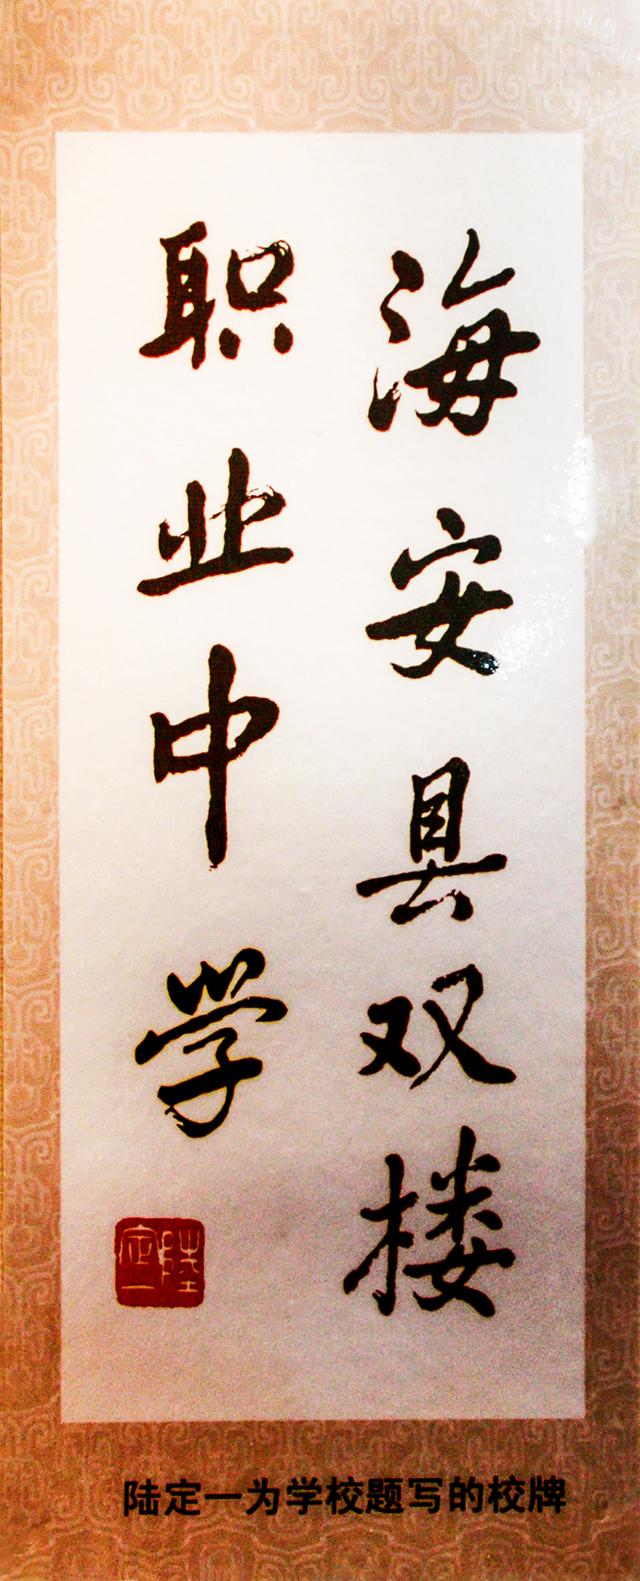 海安县双楼
职业中学
陆定一
陆定一为学校题写的校牌